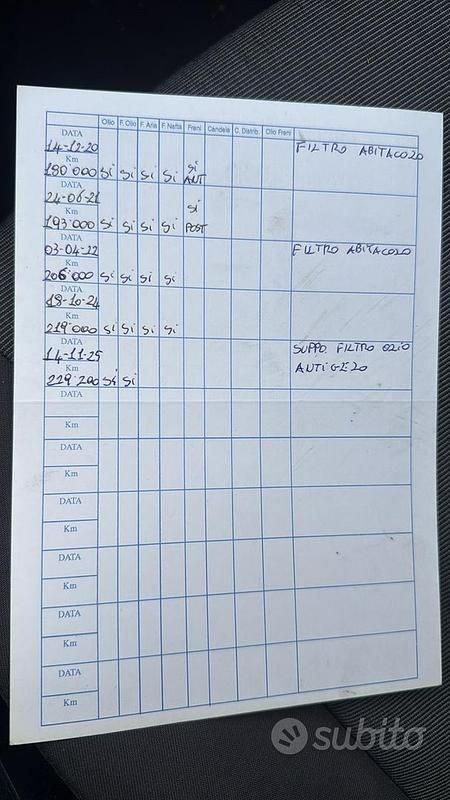 Olio F. Olio F. Aria F. Nafta Freni Candele C. Distrib. Olio Freni
DATA
14-12-20 FILTRO ABITACOLO
Km si
180.000 si si si si ANT
DATA
24-06-21 si
Km
193.000 si si si si POST
DATA
03-04-22 FILTRO ABITACOLO
Km
206.000 si si si si
DATA
18-10-24
Km
219.000 si si si si
DATA SUPPO. FILTRO OLIO
14-11-25
Km ANTIGELO
229.200 si si
DATA
Km
DATA
Km
DATA
Km
DATA
Km
DATA
Km
DATA
Km
subito